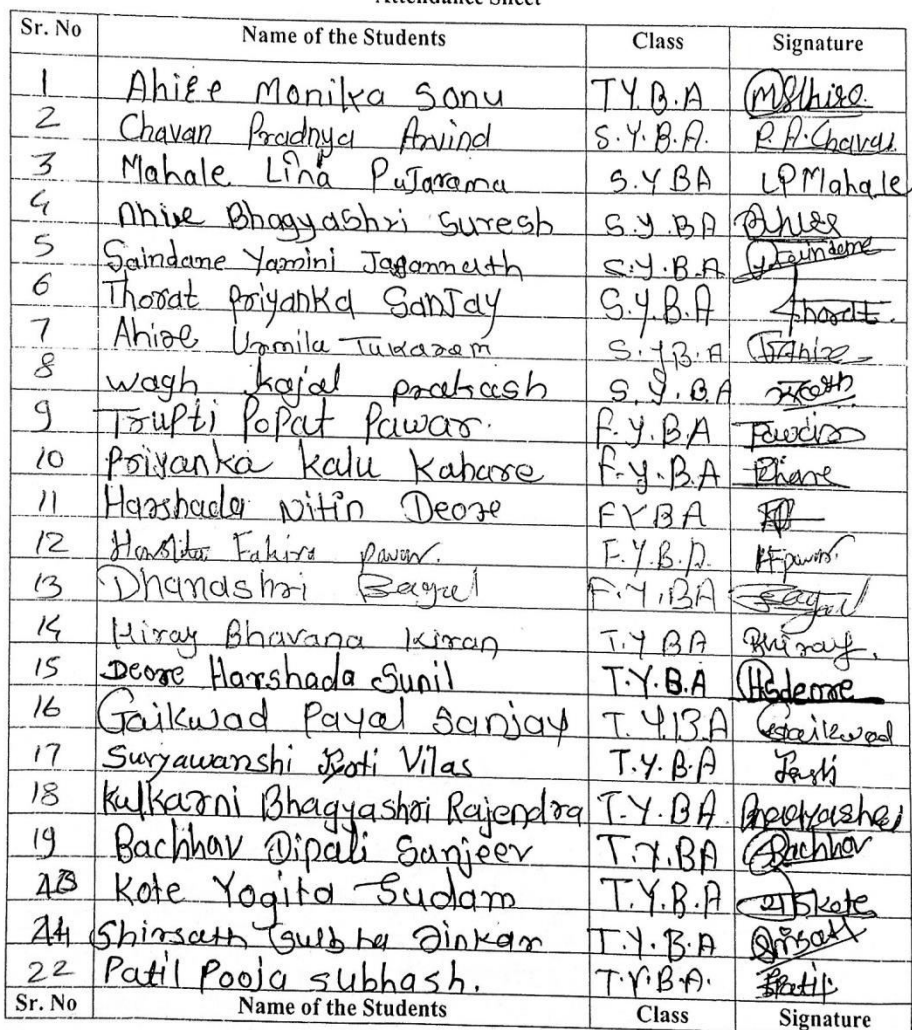 Attendance Sheet
Sr. No Name of the Students Class Signature
1 Ahire Monika Sonu T.Y.B.A MSAhire
2 Chavan Pradnya Arvind S.Y.B.A. P.A.Chavan
3 Mahale Lina Pujarama S.Y BA LPMahale
4 Ahire Bhagyashri Suresh S.Y.BA Ahire
5 Saindane Yamini Jagannath S.Y.B.A YJSaindane
6 Thorat Priyanka Sanjay S.Y.B.A Thorat.
7 Ahire Urmila Tukaram S.Y.B.A Ahire
8 Wagh Kajal prakash S.Y.BA
9 Trupti Popat Pawar. F.Y.B.A Pawar
10 Priyanka Kalu Kahare F.Y.B.A
11 Harshada Nitin Deore FYBA
12 Fakira Pawar. F.Y.B.A. HFpawar
13 Dhanashri Bagul F.Y.BA Bagul
14 Hiray Bhavana Kiran T.Y BA Bhiray.
15 Deore Harshada Sunil T.Y.B.A HSdeore
16 Gaikwad Payal Sanjay T.Y.B.A Gaikwad
17 Suryawanshi Jyoti Vilas T.Y.B.A
18 Kulkarni Bhagyashri Rajendra T.Y.BA Bhagyashri
19 Bachhav Dipali Sanjeev T.Y.BA Bachhav
Kote Yogita Sudam T.Y.B.A
Shirsath Dinkar T.Y.B.A
22 Patil Pooja subhash. T.Y.B.A. Patil
Sr. No Name of the Students Class Signature